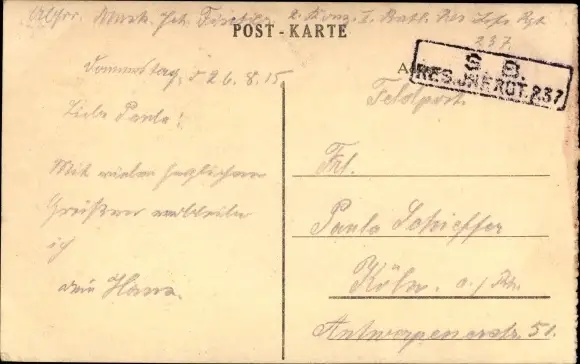 2. Komp. I. Batl. Res. Inf. Rgt.
POST - KARTE
237.
S. B.
RES. JNF. RGT. 237
Donnerstag, d 26. 8. 15
Feldpost.
Liebe Paula!
Mit vielen herzlichen
Grüßen verbleibe
ich
dein Hans.
Frl.
Paula Schieffer
Köln a/Rh.
Antwerpenerstr. 51.